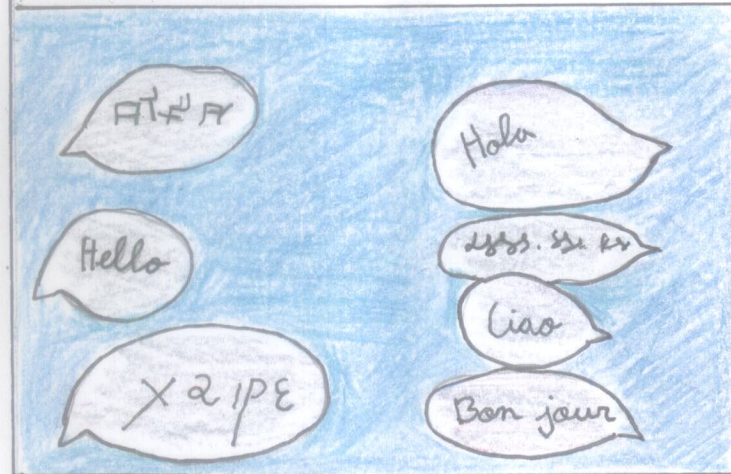 Hello
Χαιρε
Hola
Ciao
Bon jour